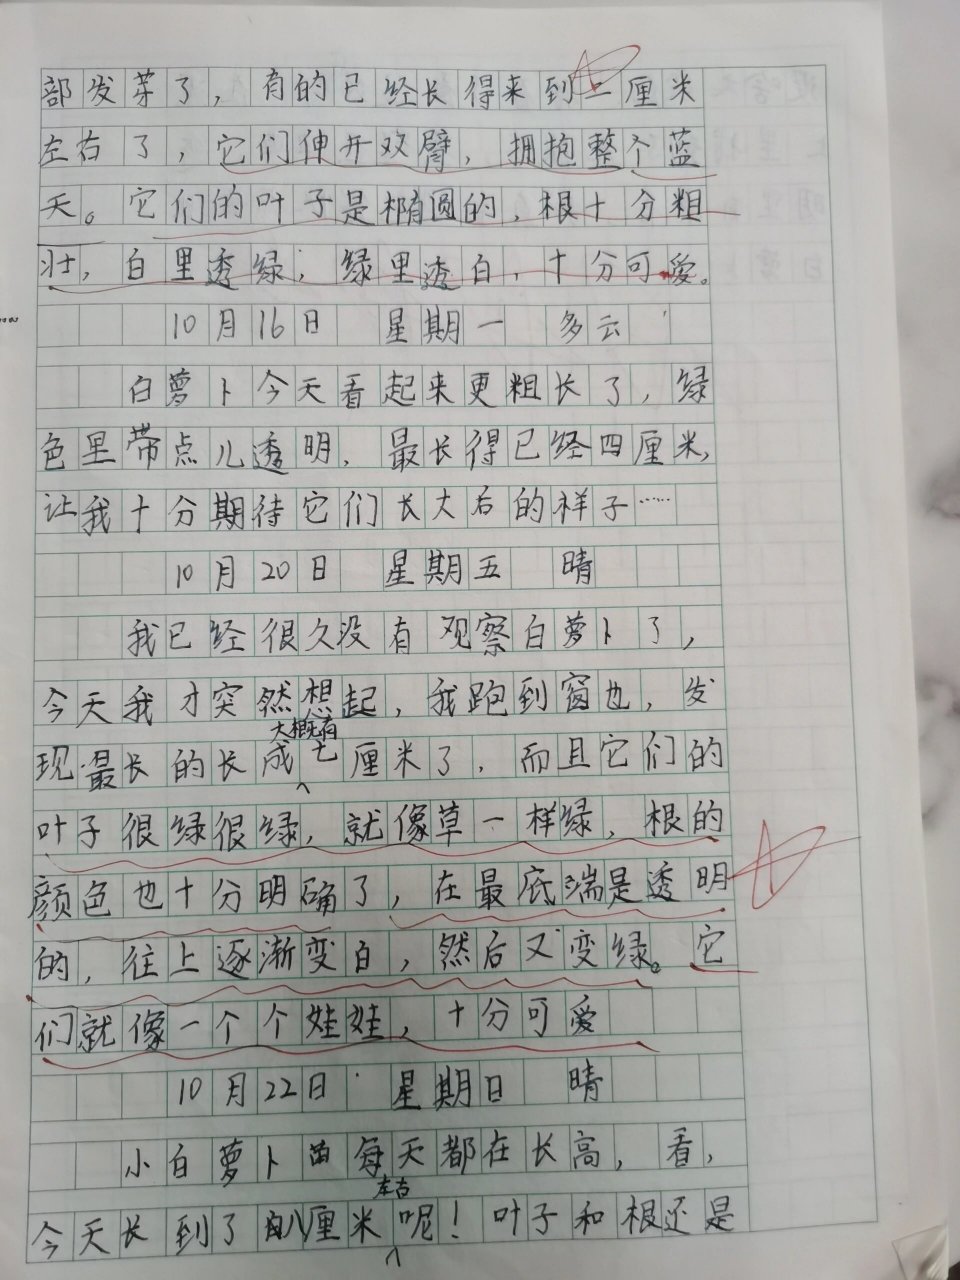 部发芽了，有的已经长得来到二厘米
左右了，它们伸开双臂，拥抱整个蓝
天。它们的叶子是椭圆的，根十分粗
壮，白里透绿，绿里透白，十分可爱。
10月16日 星期一 多云
白萝卜今天看起来更粗长了，绿
色里带点儿透明，最长得已经四厘米，
让我十分期待它们长大后的样子……
10月20日 星期五 晴
我已经很久没有观察白萝卜了，
今天我才突然想起，我跑到窗也，发
现最长的长成大概有七厘米了，而且它们的
叶子很绿很绿，就像草一样绿，根的
颜色也十分明确了，在最底端是透明
的，往上逐渐变白，然后又变绿。它
们就像一个个娃娃，十分可爱
10月22日 星期日 晴
小白萝卜苗每天都在长高，看，
今天长到了八厘米左右呢！叶子和根还是